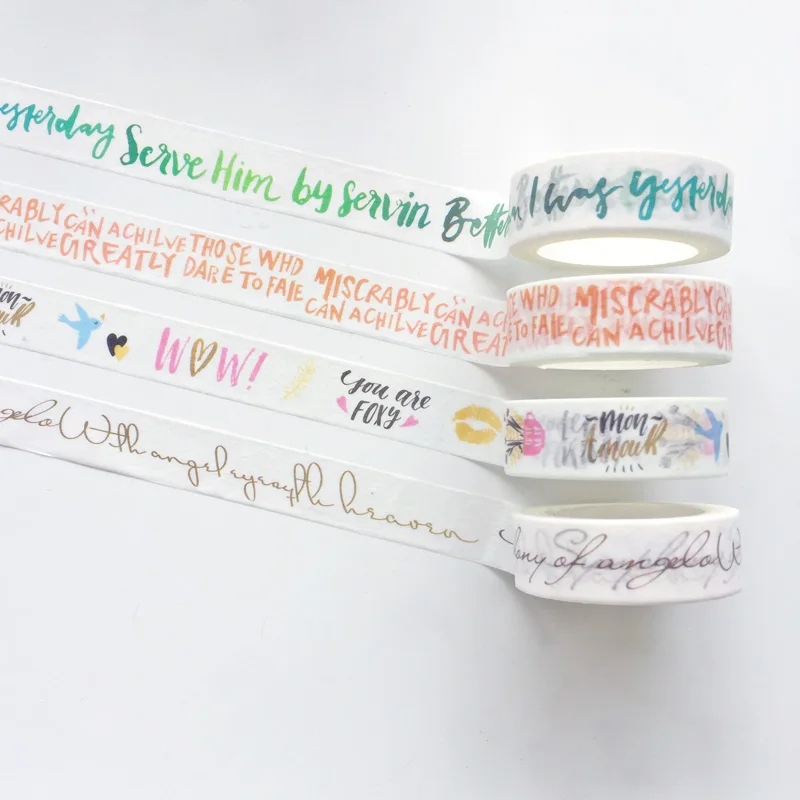 yesterday Serve Him by Servin Better
n I was yesterd
RABLY CAN ACHILVE THOSE WHO MISCRABLY CAN AC
CHILVE GREATLY DARE TO FAIE CAN ACHILVE GREAT
SE WHO MISCRABLY CAN AC
TO FAIE CAN ACHILVE GR
mon
amour
WOW!
you are
FOXY
~mon~
amour
ngelo With angel eyes yth heaven
ony of angelo W